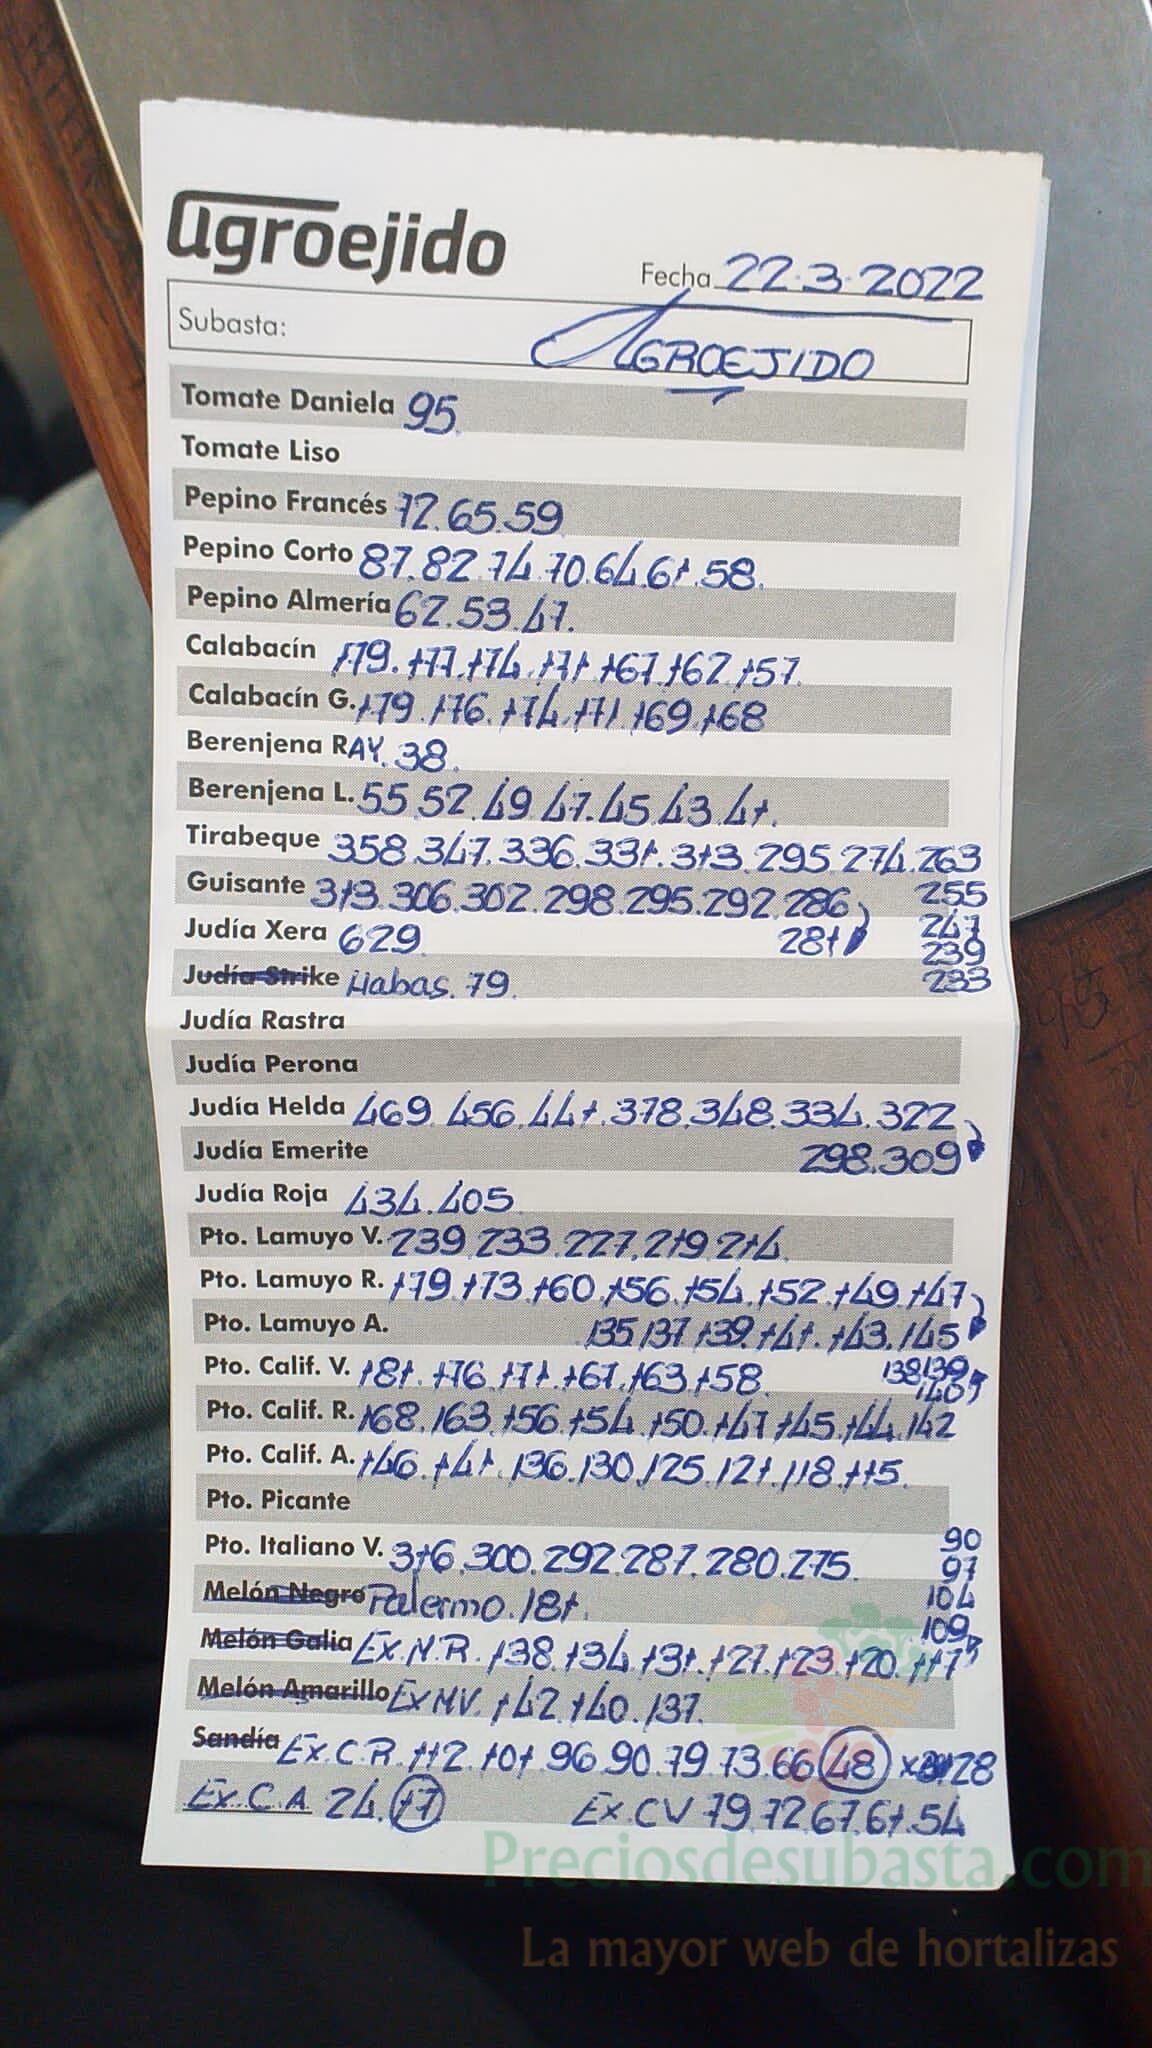 agroejido
Fecha 22.3.2022
Subasta: AGROEJIDO
Tomate Daniela 95.
Tomate Liso
Pepino Francés 72.65.59
Pepino Corto 87.82.74.70.64.61.58.
Pepino Almería 62.53.47.
Calabacín 179.177.174.171.167.162.157.
Calabacín G. 179.176.174.171.169.168
Berenjena RAY. 38.
Berenjena L. 55.52.49.47.45.43.41.
Tirabeque 358.347.336.331.313.295.274.263
255
247
239
233
Guisante 313.306.302.298.295.292.286
281
Judía Xera 629
Judía Strike Habas. 79.
Judía Rastra
Judía Perona
Judía Helda 469.456.441.378.348.334.322
298.309
Judía Emerite
Judía Roja 434.405
Pto. Lamuyo V. 239.233.227.219.214.
Pto. Lamuyo R. 179.173.160.156.154.152.149.147
135.137.139.141.143.145
Pto. Lamuyo A.
Pto. Calif. V. 181.176.171.167.163.158.
138.139
140
Pto. Calif. R. 168.163.156.154.150.147.145.144.142
Pto. Calif. A. 146.141.136.130.125.121.118.115.
Pto. Picante
Pto. Italiano V. 316.300.292.287.280.275.
90
97
104
109
Melón Negro Palermo.181.
Melón Galia Ex.N.R. 138.134.131.127.123.120.117
Melón Amarillo Ex NV. 142.140.137.
Sandía Ex.C.R. 112.101.96.90.79.73.66 48 28
Ex.C.A. 24. 17 Ex.CV 79.72.67.61.54
Preciosdesubasta.com
La mayor web de hortalizas